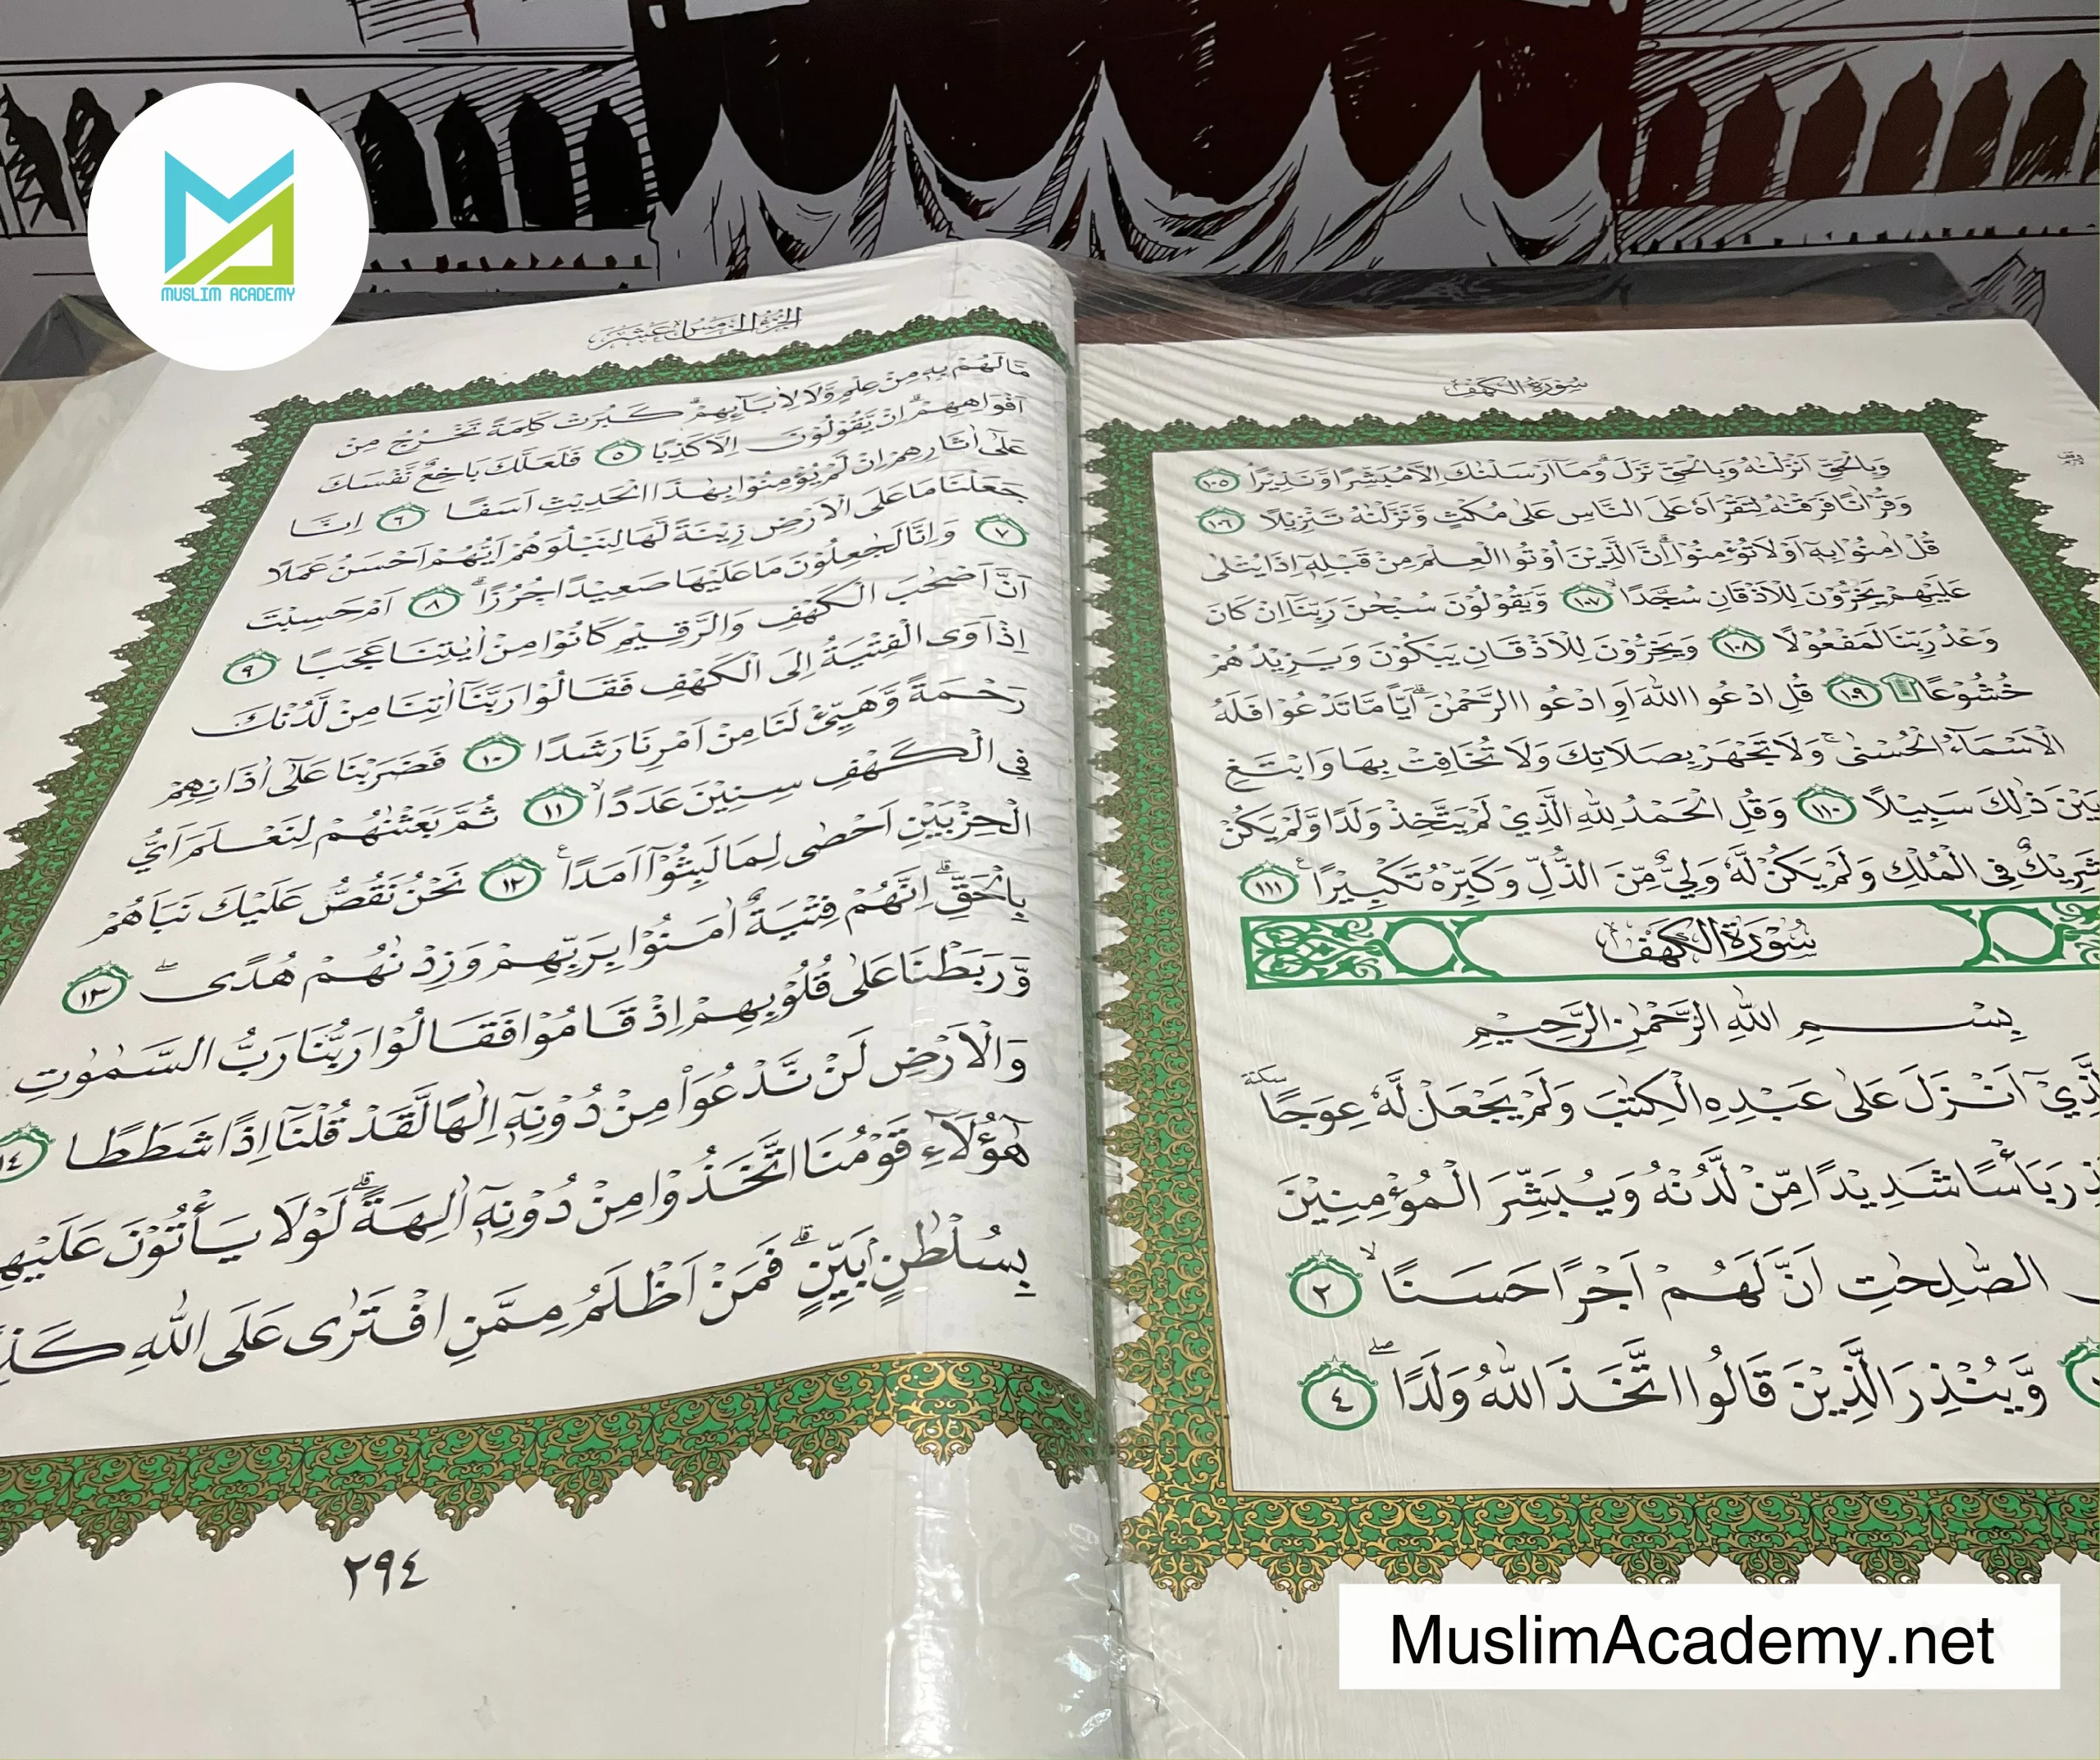 MUSLIM ACADEMY
سُوْرَةُ الْكَهْفِ
وَبِالْحَقِّ اَنْزَلْنٰهُ وَبِالْحَقِّ نَزَلَ ۗ وَمَآ اَرْسَلْنٰكَ اِلَّا مُبَشِّرًا وَّنَذِيْرًا ۘ ١٠٥
وَقُرْاٰنًا فَرَقْنٰهُ لِتَقْرَاَهٗ عَلَى النَّاسِ عَلٰى مُكْثٍ وَّنَزَّلْنٰهُ تَنْزِيْلًا ١٠٦
قُلْ اٰمِنُوْا بِهٖٓ اَوْ لَا تُؤْمِنُوْا ۗ اِنَّ الَّذِيْنَ اُوْتُوا الْعِلْمَ مِنْ قَبْلِهٖٓ اِذَا يُتْلٰى
عَلَيْهِمْ يَخِرُّوْنَ لِلْاَذْقَانِ سُجَّدًا ۙ ١٠٧ وَّيَقُوْلُوْنَ سُبْحٰنَ رَبِّنَآ اِنْ كَانَ
وَعْدُ رَبِّنَا لَمَفْعُوْلًا ١٠٨ وَيَخِرُّوْنَ لِلْاَذْقَانِ يَبْكُوْنَ وَيَزِيْدُهُمْ
خُشُوْعًا ۩ ١٠٩ قُلِ ادْعُوا اللّٰهَ اَوِ ادْعُوا الرَّحْمٰنَ ۗ اَيًّا مَّا تَدْعُوْا فَلَهُ
الْاَسْمَاۤءُ الْحُسْنٰى ۚ وَلَا تَجْهَرْ بِصَلَاتِكَ وَلَا تُخَافِتْ بِهَا وَابْتَغِ
بَيْنَ ذٰلِكَ سَبِيْلًا ١١٠ وَقُلِ الْحَمْدُ لِلّٰهِ الَّذِيْ لَمْ يَتَّخِذْ وَلَدًا وَّلَمْ يَكُنْ
شَرِيْكٌ فِى الْمُلْكِ وَلَمْ يَكُنْ لَّهٗ وَلِيٌّ مِّنَ الذُّلِّ وَكَبِّرْهُ تَكْبِيْرًا ࣖ ١١١
سُوْرَةُ الْكَهْفِ
بِسْمِ اللّٰهِ الرَّحْمٰنِ الرَّحِيْمِ
اَنْزَلَ عَلٰى عَبْدِهِ الْكِتٰبَ وَلَمْ يَجْعَلْ لَّهٗ عِوَجًا سكتة
بَأْسًا شَدِيْدًا مِّنْ لَّدُنْهُ وَيُبَشِّرَ الْمُؤْمِنِيْنَ
الصّٰلِحٰتِ اَنَّ لَهُمْ اَجْرًا حَسَنًا ۙ ٢
وَّيُنْذِرَ الَّذِيْنَ قَالُوا اتَّخَذَ اللّٰهُ وَلَدًا ۖ ٤
الجزء الخامس عشر
مَا لَهُمْ بِهٖ مِنْ عِلْمٍ وَّلَا لِاٰبَاۤىِٕهِمْ ۗ كَبُرَتْ كَلِمَةً تَخْرُجُ مِنْ
اَفْوَاهِهِمْ ۗ اِنْ يَّقُوْلُوْنَ اِلَّا كَذِبًا ٥ فَلَعَلَّكَ بَاخِعٌ نَّفْسَكَ
عَلٰٓى اٰثَارِهِمْ اِنْ لَّمْ يُؤْمِنُوْا بِهٰذَا الْحَدِيْثِ اَسَفًا ٦ اِنَّا
جَعَلْنَا مَا عَلَى الْاَرْضِ زِيْنَةً لَّهَا لِنَبْلُوَهُمْ اَيُّهُمْ اَحْسَنُ عَمَلًا
٧ وَاِنَّا لَجٰعِلُوْنَ مَا عَلَيْهَا صَعِيْدًا جُرُزًا ۗ ٨ اَمْ حَسِبْتَ
اَنَّ اَصْحٰبَ الْكَهْفِ وَالرَّقِيْمِ كَانُوْا مِنْ اٰيٰتِنَا عَجَبًا ٩
اِذْ اَوَى الْفِتْيَةُ اِلَى الْكَهْفِ فَقَالُوْا رَبَّنَآ اٰتِنَا مِنْ لَّدُنْكَ
رَحْمَةً وَّهَيِّئْ لَنَا مِنْ اَمْرِنَا رَشَدًا ١٠ فَضَرَبْنَا عَلٰٓى اٰذَانِهِمْ
فِى الْكَهْفِ سِنِيْنَ عَدَدًا ۙ ١١ ثُمَّ بَعَثْنٰهُمْ لِنَعْلَمَ اَيُّ
الْحِزْبَيْنِ اَحْصٰى لِمَا لَبِثُوْٓا اَمَدًا ࣖ ١٢ نَحْنُ نَقُصُّ عَلَيْكَ نَبَاَهُمْ
بِالْحَقِّ ۗ اِنَّهُمْ فِتْيَةٌ اٰمَنُوْا بِرَبِّهِمْ وَزِدْنٰهُمْ هُدًى ۖ ١٣
وَّرَبَطْنَا عَلٰى قُلُوْبِهِمْ اِذْ قَامُوْا فَقَالُوْا رَبُّنَا رَبُّ السَّمٰوٰتِ
وَالْاَرْضِ لَنْ نَّدْعُوَا۟ مِنْ دُوْنِهٖٓ اِلٰهًا لَّقَدْ قُلْنَآ اِذًا شَطَطًا ١٤
هٰٓؤُلَاۤءِ قَوْمُنَا اتَّخَذُوْا مِنْ دُوْنِهٖٓ اٰلِهَةً ۗ لَوْلَا يَأْتُوْنَ عَلَيْهِ
بِسُلْطٰنٍۢ بَيِّنٍ ۗ فَمَنْ اَظْلَمُ مِمَّنِ افْتَرٰى عَلَى اللّٰهِ
٢٩٤
MuslimAcademy.net